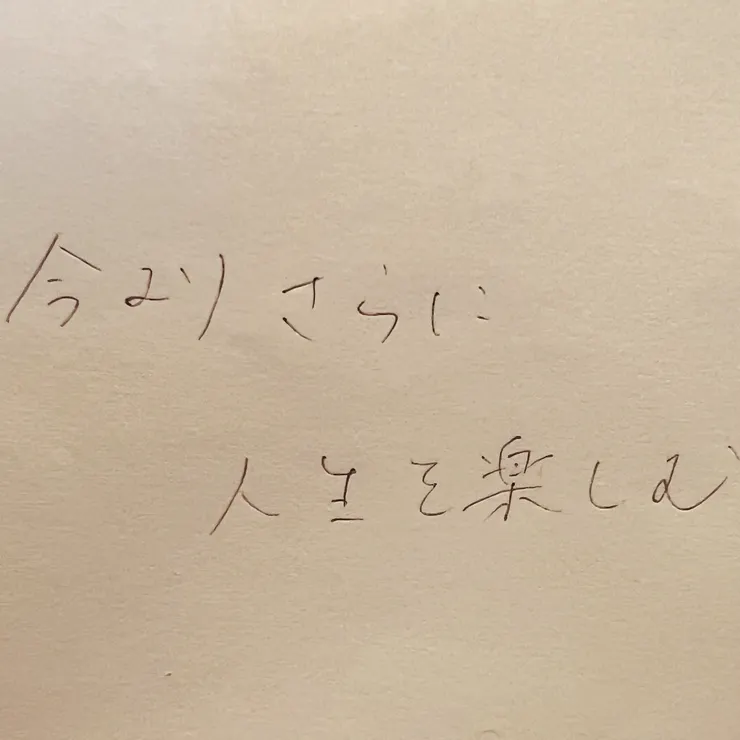 今よりさらに
人生を楽しむ